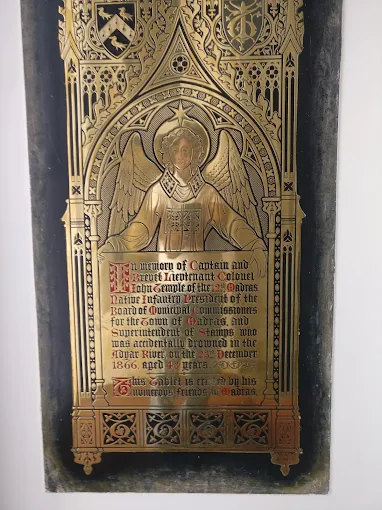 In memory of Captain and
Brevet Lieutenant Colonel
John Temple of the 22nd Madras
Native Infantry President of the
Board of Municipal Commissioners
for the Town of Madras, and
Superintendent of Stamps who
was accidentally drowned in the
Adyar River, on the 23rd December
1866, aged years.
This Tablet is erected by his
numerous friends in Madras.